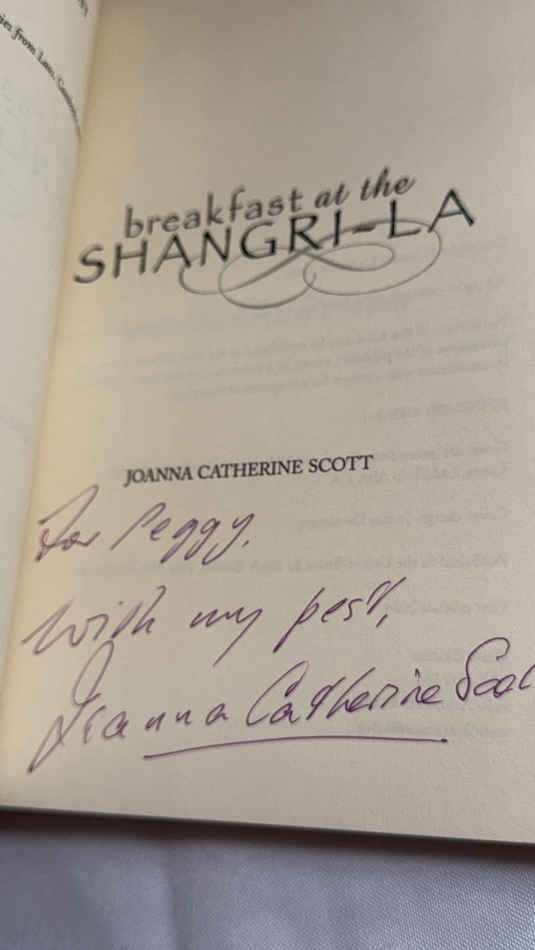 breakfast at the
SHANGRI-LA
JOANNA CATHERINE SCOTT
For Peggy,
with my best,
Joanna Catherine Scot